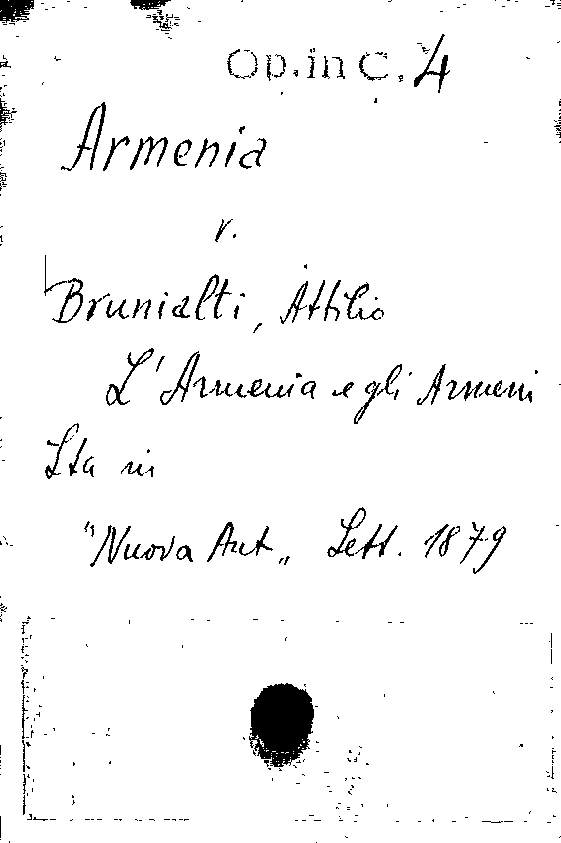 Op. in C. 4
Armenia
v.
Brunialti, Attilio
L'Armenia e gli Armeni
Sta in
"Nuova Ant„ Sett. 1879